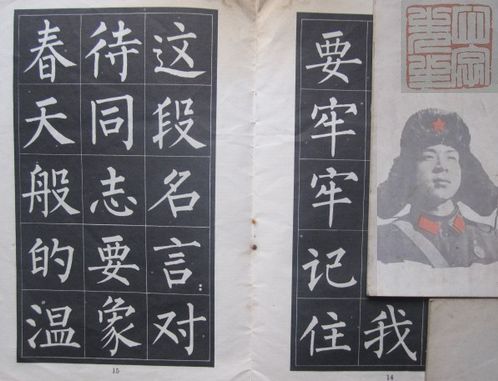 我
要牢牢记住
14
这段名言：对
待同志要象
春天般的温
15